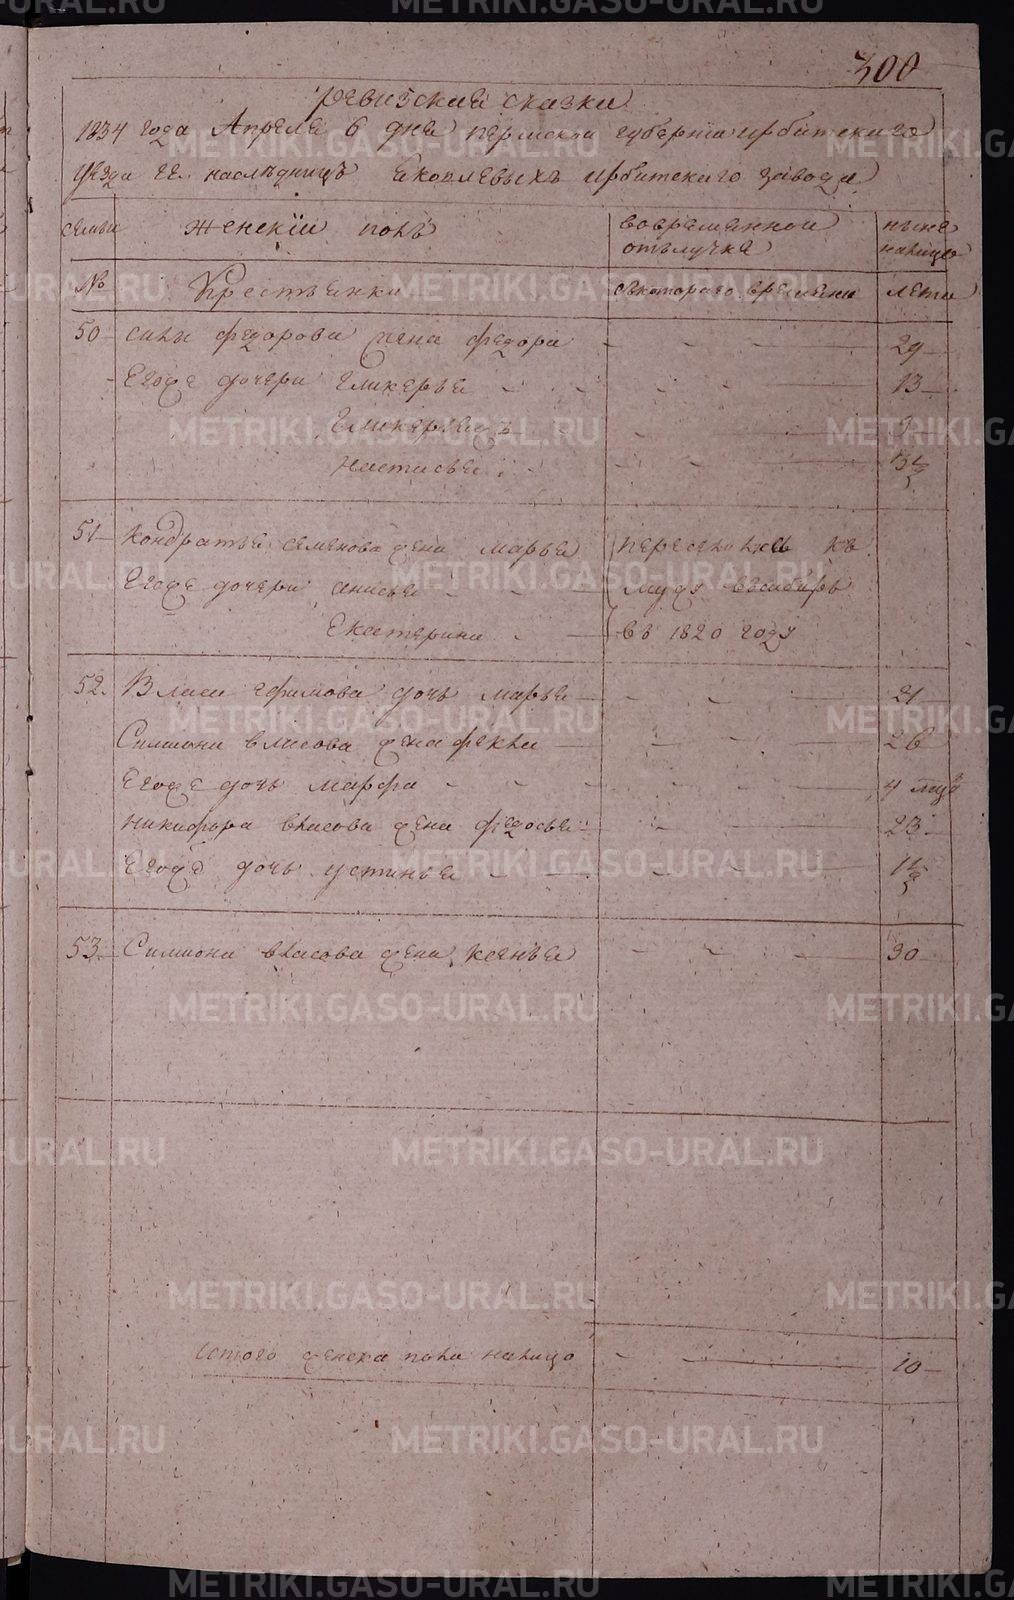 300
Ревизские сказки
1834 года Апреля 6 дня пермской губернии ирбитского
уезда г.г. наследницъ Яковлевыхъ ирбитского завода
семьи женский полъ вовременной отълучке ныне налицо
№ Крестьянки съкоторого времени лета
50 силы федорова жена федора 29
Егоже дочери гликерья 13
Гликерья
настасья
51 Кондратья семенова жена марья переселился къ
Егоже дочери анисья мужу въсибирь
Екатерина въ 1820 году
52. Власа ефимова дочь марья 21
Симиона власова жена фекла 26
Егоже дочь марфа 4 мца
никифора власова жена федосья 23
Егоже дочь устинья 1½
53. Симиона власова жена ксенья 30
Итого женска пола налицо 10
METRIKI.GASO-URAL.RU